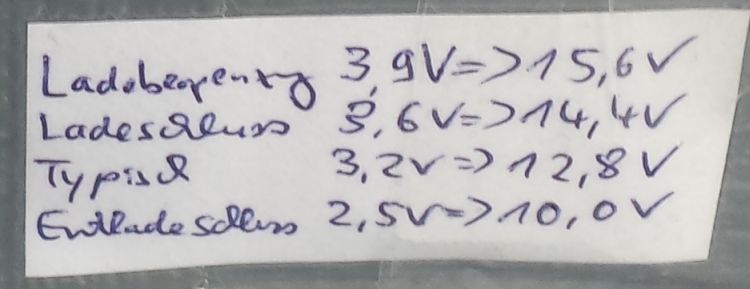 Ladebegrenzg 3,9V=>15,6V
Ladeschluss 3,6V=>14,4V
Typisch 3,2V=>12,8V
Entladeschluss 2,5V=>10,0V